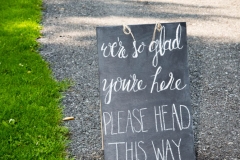 we're so glad
you're here
PLEASE HEAD
THIS WAY